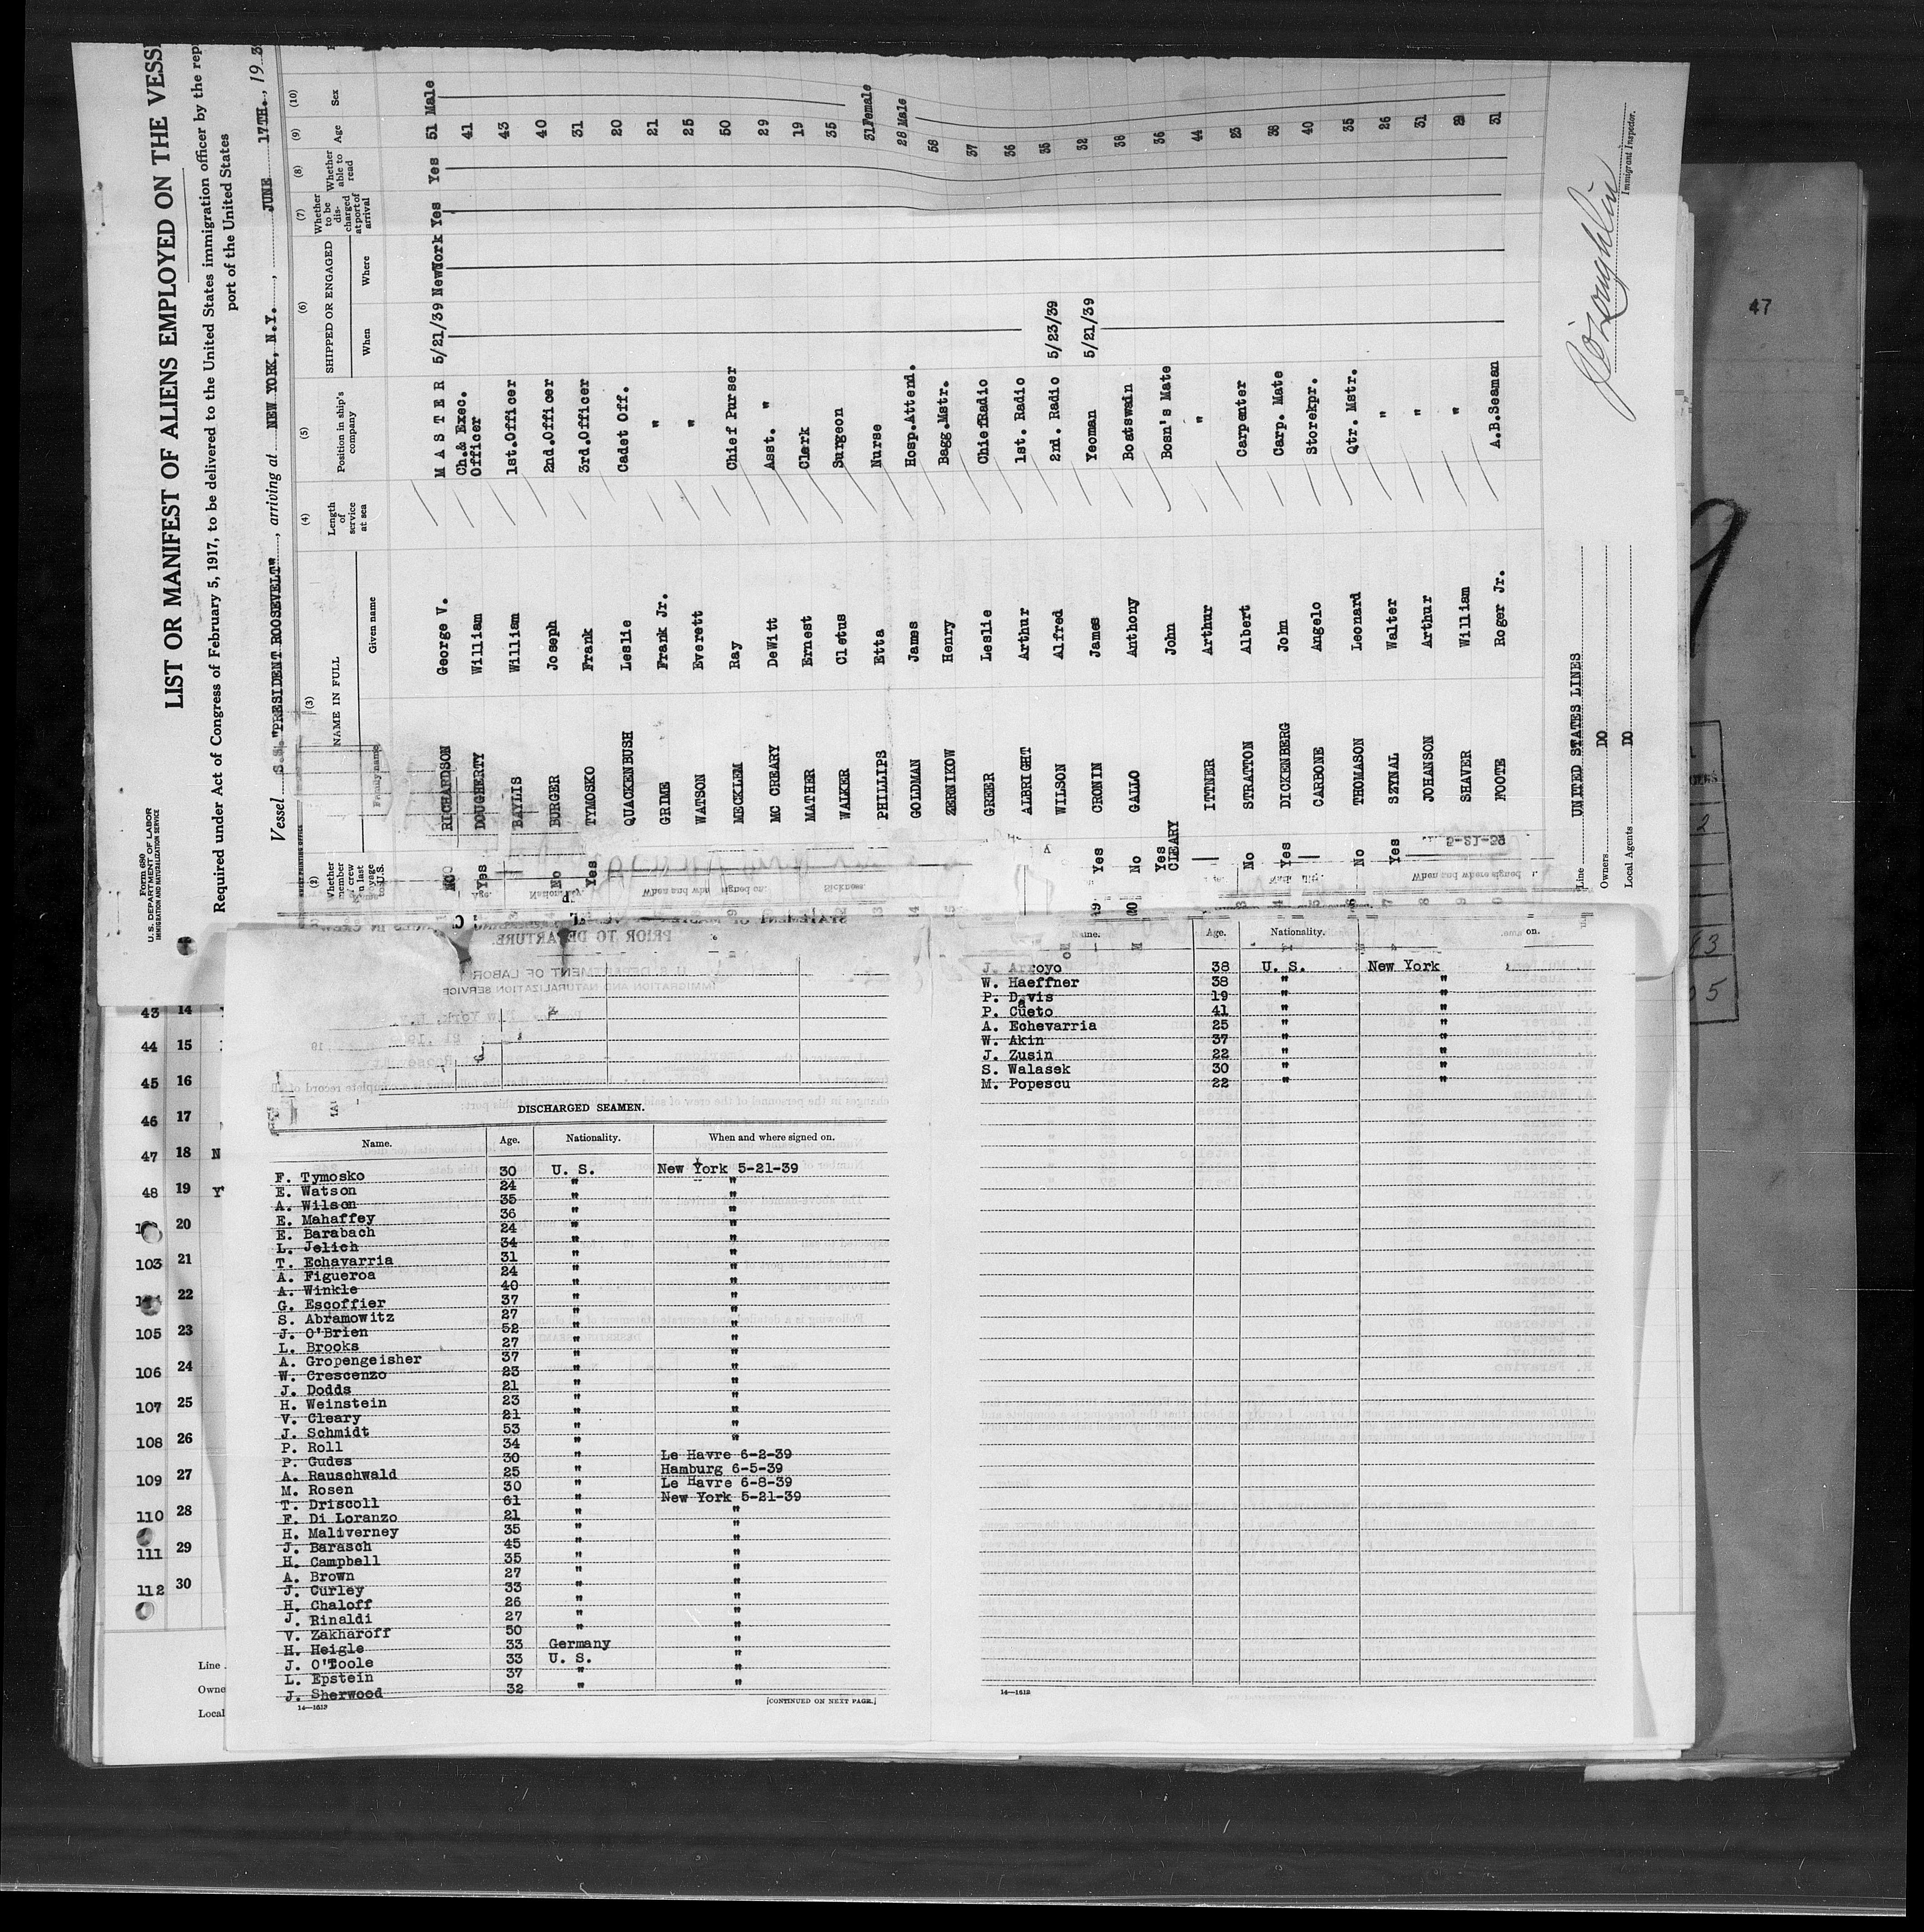 Form 680
U. S. DEPARTMENT OF LABOR
IMMIGRATION AND NATURALIZATION SERVICE
LIST OR MANIFEST OF ALIENS EMPLOYED ON THE VESS
Required under Act of Congress of February 5, 1917, to be delivered to the United States immigration officer by the rep
port of the United States
Vessel S.S. "PRESIDENT ROOSEVELT", arriving at NEW YORK, N.Y., JUNE 17TH., 19 3
(2) (3) (4) (5) (6) (7) (8) (9) (10)
Whether member of crew on last voyage to U.S.
NAME IN FULL
Family name Given name
Length of service at sea
Position in ship's company
SHIPPED OR ENGAGED
When Where
Whether to be discharged at port of arrival
Whether able to read
Age
Sex
NO RICHARDSON George V. M A S T E R 5/21/39 NewYork Yes Yes 51 Male
Yes DOUGHERTY William Ch.& Exec. Officer 41
BAYLIS William 1st.Officer 43
No BURGER Joseph 2nd.Officer 40
Yes TYMOSKO Frank 3rd.Officer 31
QUACKENBUSH Leslie Cadet Off. 20
GRIME Frank Jr. " 21
WATSON Everett " 25
MECKLEM Ray Chief Purser 50
MC CREARY DeWitt Asst. " 29
MATHER Ernest Clerk 19
WALKER Cletus Surgeon 35
PHILLIPS Etta Nurse 31 Female
GOLDMAN James Hosp.Attend. 28 Male
ZERNIKOW Henry Bagg.Mstr. 58
GREER Leslie ChiefRadio 37
ALBRIGHT Arthur 1st. Radio 36
WILSON Alfred 2nd. Radio 5/23/39 35
Yes CRONIN James Yeoman 5/21/39 32
No GALLO Anthony Boatswain 38
Yes CLEARY John Bosn's Mate 36
ITTNER Arthur " 44
No STRATTON Albert Carpenter 23
Yes DICKENBERG John Carp. Mate 38
CARBONE Angelo Storekpr. 40
No THOMASON Leonard Qtr. Mstr. 35
Yes SZYNAL Walter " 26
JOHANSON Arthur " 31
SHAVER William " 29
FOOTE Roger Jr. A.B.Seaman 31
Line UNITED STATES LINES
Owners DO
Local Agents DO
Immigrant Inspector.
47
PRIOR TO DEPARTURE
U. S. DEPARTMENT OF LABOR
IMMIGRATION AND NATURALIZATION SERVICE
43 14
44 15
45 16
46 17
47 18 N
48 19 Y
20
103 21
22
105 23
106 24
107 25
108 26
109 27
110 28
111 29
112 30
Line
Owne
Local
DISCHARGED SEAMEN.
Name. Age. Nationality. When and where signed on.
F. Tymosko 30 U. S. New York 5-21-39
E. Watson 24 " "
A. Wilson 35 " "
E. Mahaffey 36 " "
E. Barabach 24 " "
L. Jelich 34 " "
T. Echavarria 31 " "
A. Figueroa 24 " "
A. Winkle 40 " "
G. Escoffier 37 " "
S. Abramowitz 27 " "
J. O'Brien 52 " "
L. Brooks 27 " "
A. Gropengeisher 37 " "
W. Crescenzo 23 " "
J. Dodds 21 " "
H. Weinstein 23 " "
V. Cleary 21 " "
J. Schmidt 53 " "
P. Roll 34 " "
P. Gudes 30 " Le Havre 6-2-39
A. Rauschwald 25 " Hamburg 6-5-39
M. Rosen 30 " Le Havre 6-8-39
T. Driscoll 61 " New York 5-21-39
F. Di Loranzo 21 " "
H. Maliverney 35 " "
J. Barasch 45 " "
H. Campbell 35 " "
A. Brown 27 " "
J. Curley 33 " "
H. Chaloff 26 " "
J. Rinaldi 27 " "
V. Zakharoff 50 " "
H. Heigle 33 Germany "
J. O'Toole 33 U. S. "
L. Epstein 37 " "
J. Sherwood 32 " "
14—1613
[CONTINUED ON NEXT PAGE.]
Age. Nationality.
J. Arroyo 38 U. S. New York
W. Haeffner 38 " "
P. Davis 19 " "
P. Cueto 41 " "
A. Echevarria 25 " "
W. Akin 37 " "
J. Zusin 22 " "
S. Walasek 30 " "
M. Popescu 22 " "
14—1613